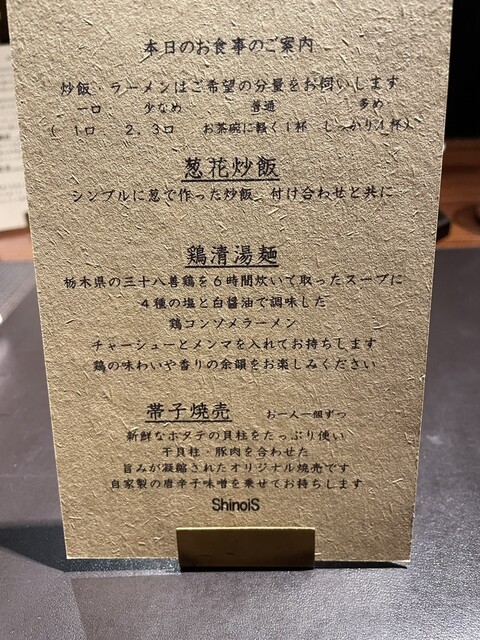 本日のお食事のご案内
炒飯・ラーメンはご希望の分量をお伺いします
一口 少なめ 普通 多め
( 1口 2、3口 お茶碗に軽く1杯 しっかり1杯)
葱花炒飯
シンプルに葱で作った炒飯、付け合わせと共に
鶏清湯麺
栃木県の三十八善鶏を6時間炊いて取ったスープに
4種の塩と白醤油で調味した
鶏コンソメラーメン
チャーシューとメンマを入れてお持ちします
鶏の味わいや香りの余韻をお楽しみください
帯子焼売 お一人一個ずつ
新鮮なホタテの貝柱をたっぷり使い
干貝柱・豚肉を合わせた
旨みが凝縮されたオリジナル焼売です
自家製の唐辛子味噌を乗せてお持ちします
ShinoiS